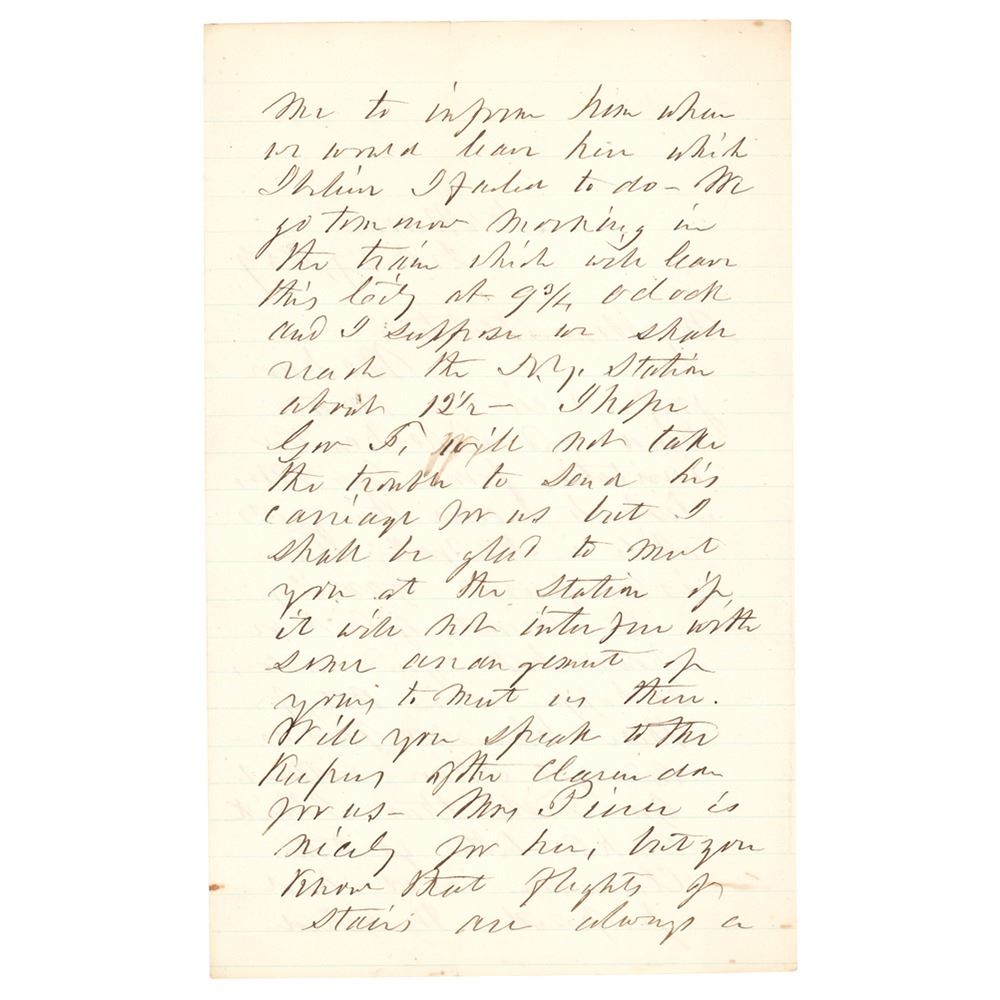 me to inform him when
we would leave here which
I believe I failed to do - We
go tomorrow morning in
the train which will leave
this City at 9 3/4 oclock
and I suppose we shall
reach the N.Y. Station
about 12 1/2 - I hope
Gov F. will not take
the trouble to send his
carriage for us but I
shall be glad to meet
you at the station if
it will not interfere with
some arrangement of
yours to meet us there.
Will you speak to the
Keepers of the Clarendon
for us - Mrs Pierce is
nicely for her, but you
Know that flights of
stairs are always a